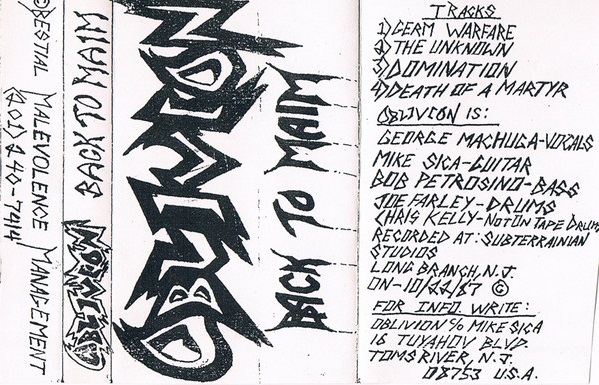 ©BESTIAL MALEVOLENCE MANAGEMENT
(201) 240-7414
BACK TO MAIM OBLIVION
OBLIVION
BACK TO MAIM
TRACKS
1) GERM WARFARE
2) THE UNKNOWN
3) DOMINATION
4) DEATH OF A MARTYR
OBLIVION IS:
GEORGE MACHUGA-VOCALS
MIKE SICA-GUITAR
BOB PETROSINO-BASS
JOE FARLEY-DRUMS
CHRIS KELLY-NOT ON TAPE DRUMS
RECORDED AT: SUBTERRAINIAN
STUDIOS
LONG BRANCH, N.J.
ON-10/22/87 ©
FOR INFO. WRITE:
OBLIVION % MIKE SICA
16 TUYAHOV BLVD.
TOMS RIVER, N.J.
08753 U.S.A.